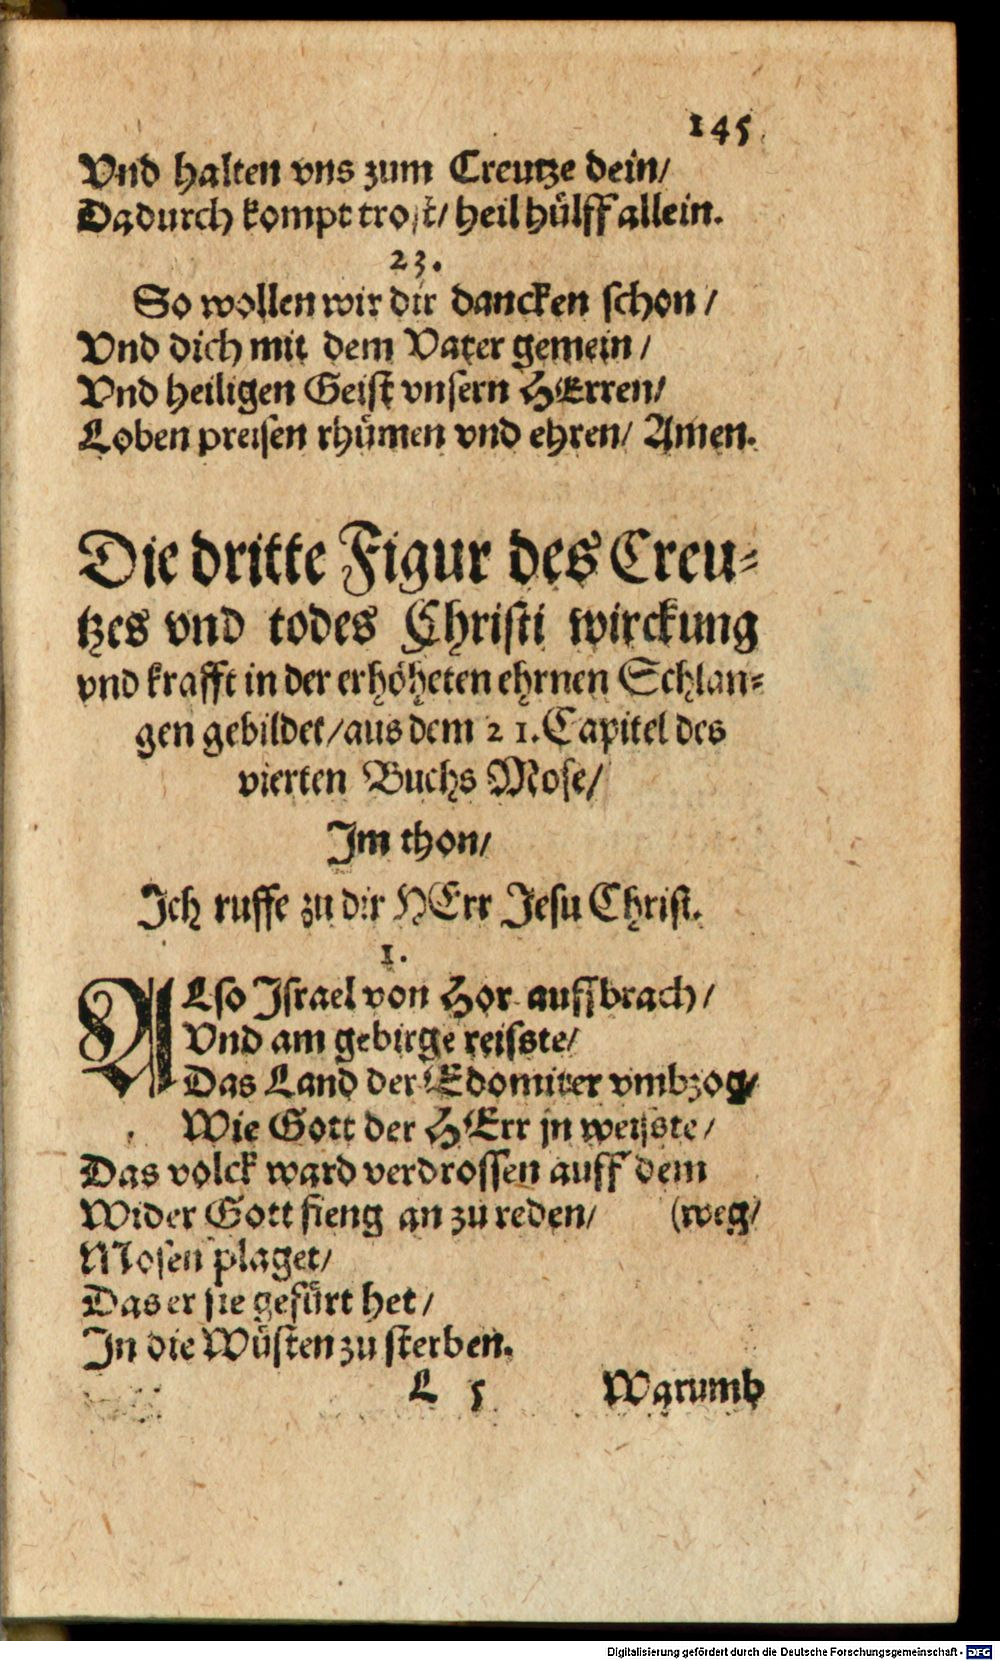 145
Vnd halten vns zum Creutze dein/
Dadurch kompt trost/ heil hülff allein.
23.
So wollen wir dir dancken schon/
Vnd dich mit dem Vater gemein/
Vnd heiligen Geist vnsern HErren/
Loben preisen rhümen vnd ehren/ Amen.
Die dritte Figur des Creu-
tzes vnd todes Christi wirckung
vnd krafft in der erhöheten ehrnen Schlan-
gen gebildet/ aus dem 21. Capitel des
vierten Buchs Mose/
Im thon/
Ich ruffe zu dir HErr Jesu Christ.
1.
ALso Israel von Hor auffbrach/
Vnd am gebirge reisste/
Das Land der Edomiter vmbzog/
Wie Gott der HErr jn weisste/
Das volck ward verdrossen auff dem
Wider Gott fieng an zu reden/ (weg/
Mosen plaget/
Das er sie gefürt het/
In die Wüsten zu sterben.
L 5 Warumb
Digitalisierung gefördert durch die Deutsche Forschungsgemeinschaft - DFG